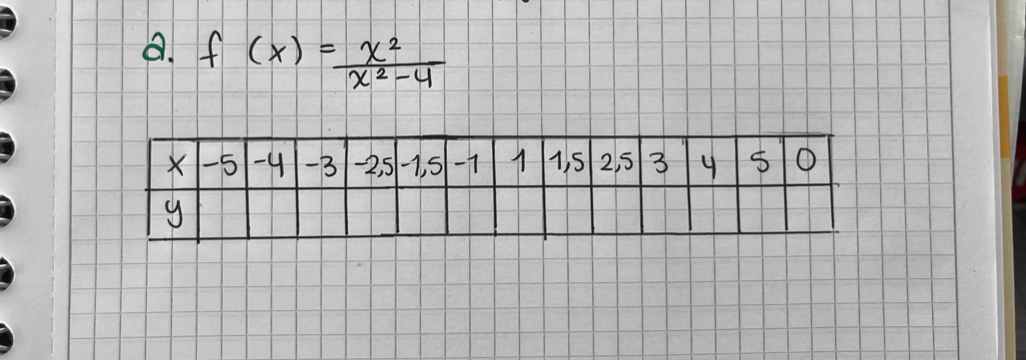 a. f (x) = x²/(x²-4)
x -5 -4 -3 -2,5 -1,5 -1 1 1,5 2,5 3 4 5 0
y